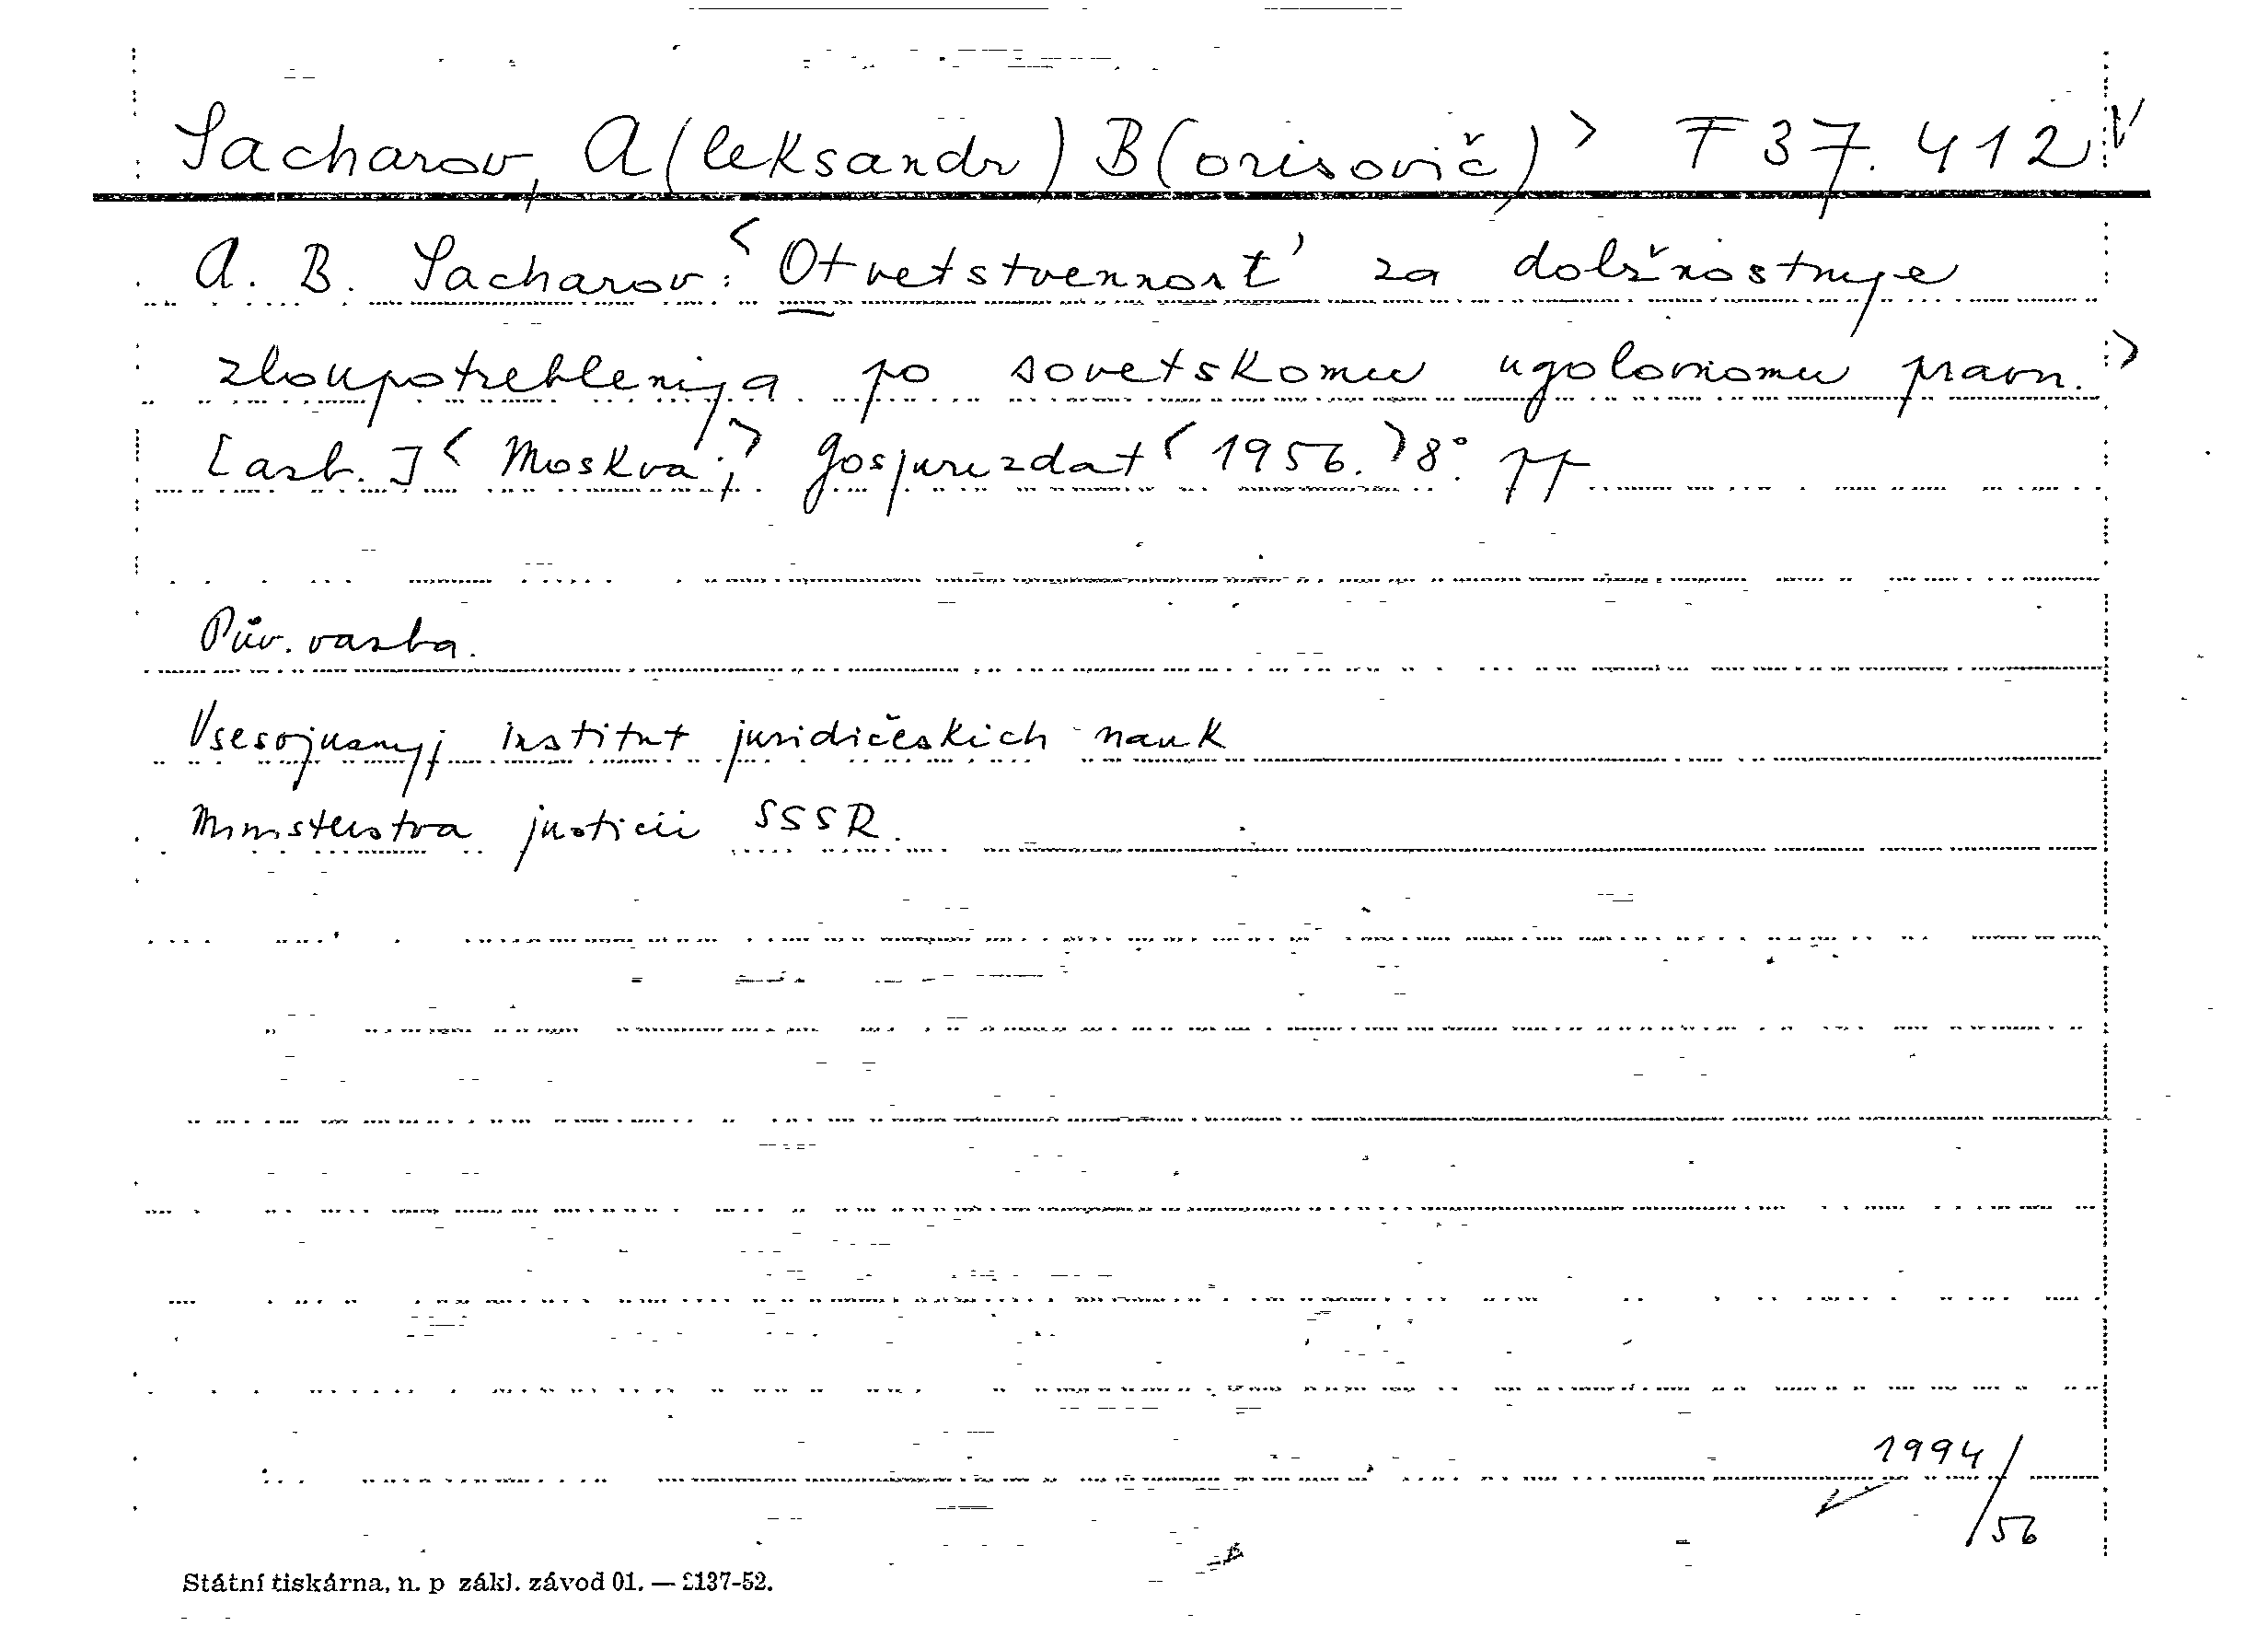 Sacharov, A(leksandr) B(orisovič)> F 37.412
A. B. Sacharov: <Otvetstvennost' za dolžnostnyje
zloupotreblenija po sovetskomu ugolovnomu pravu.>
[azb.] <Moskva;> Gosjurizdat <1956.> 8°.
Pův. vazba.
Vsesojuznyj institut juridičeskich nauk
Ministerstva justicii SSSR.
1994/56
Státní tiskárna, n. p zákl. závod 01. — 2137-52.